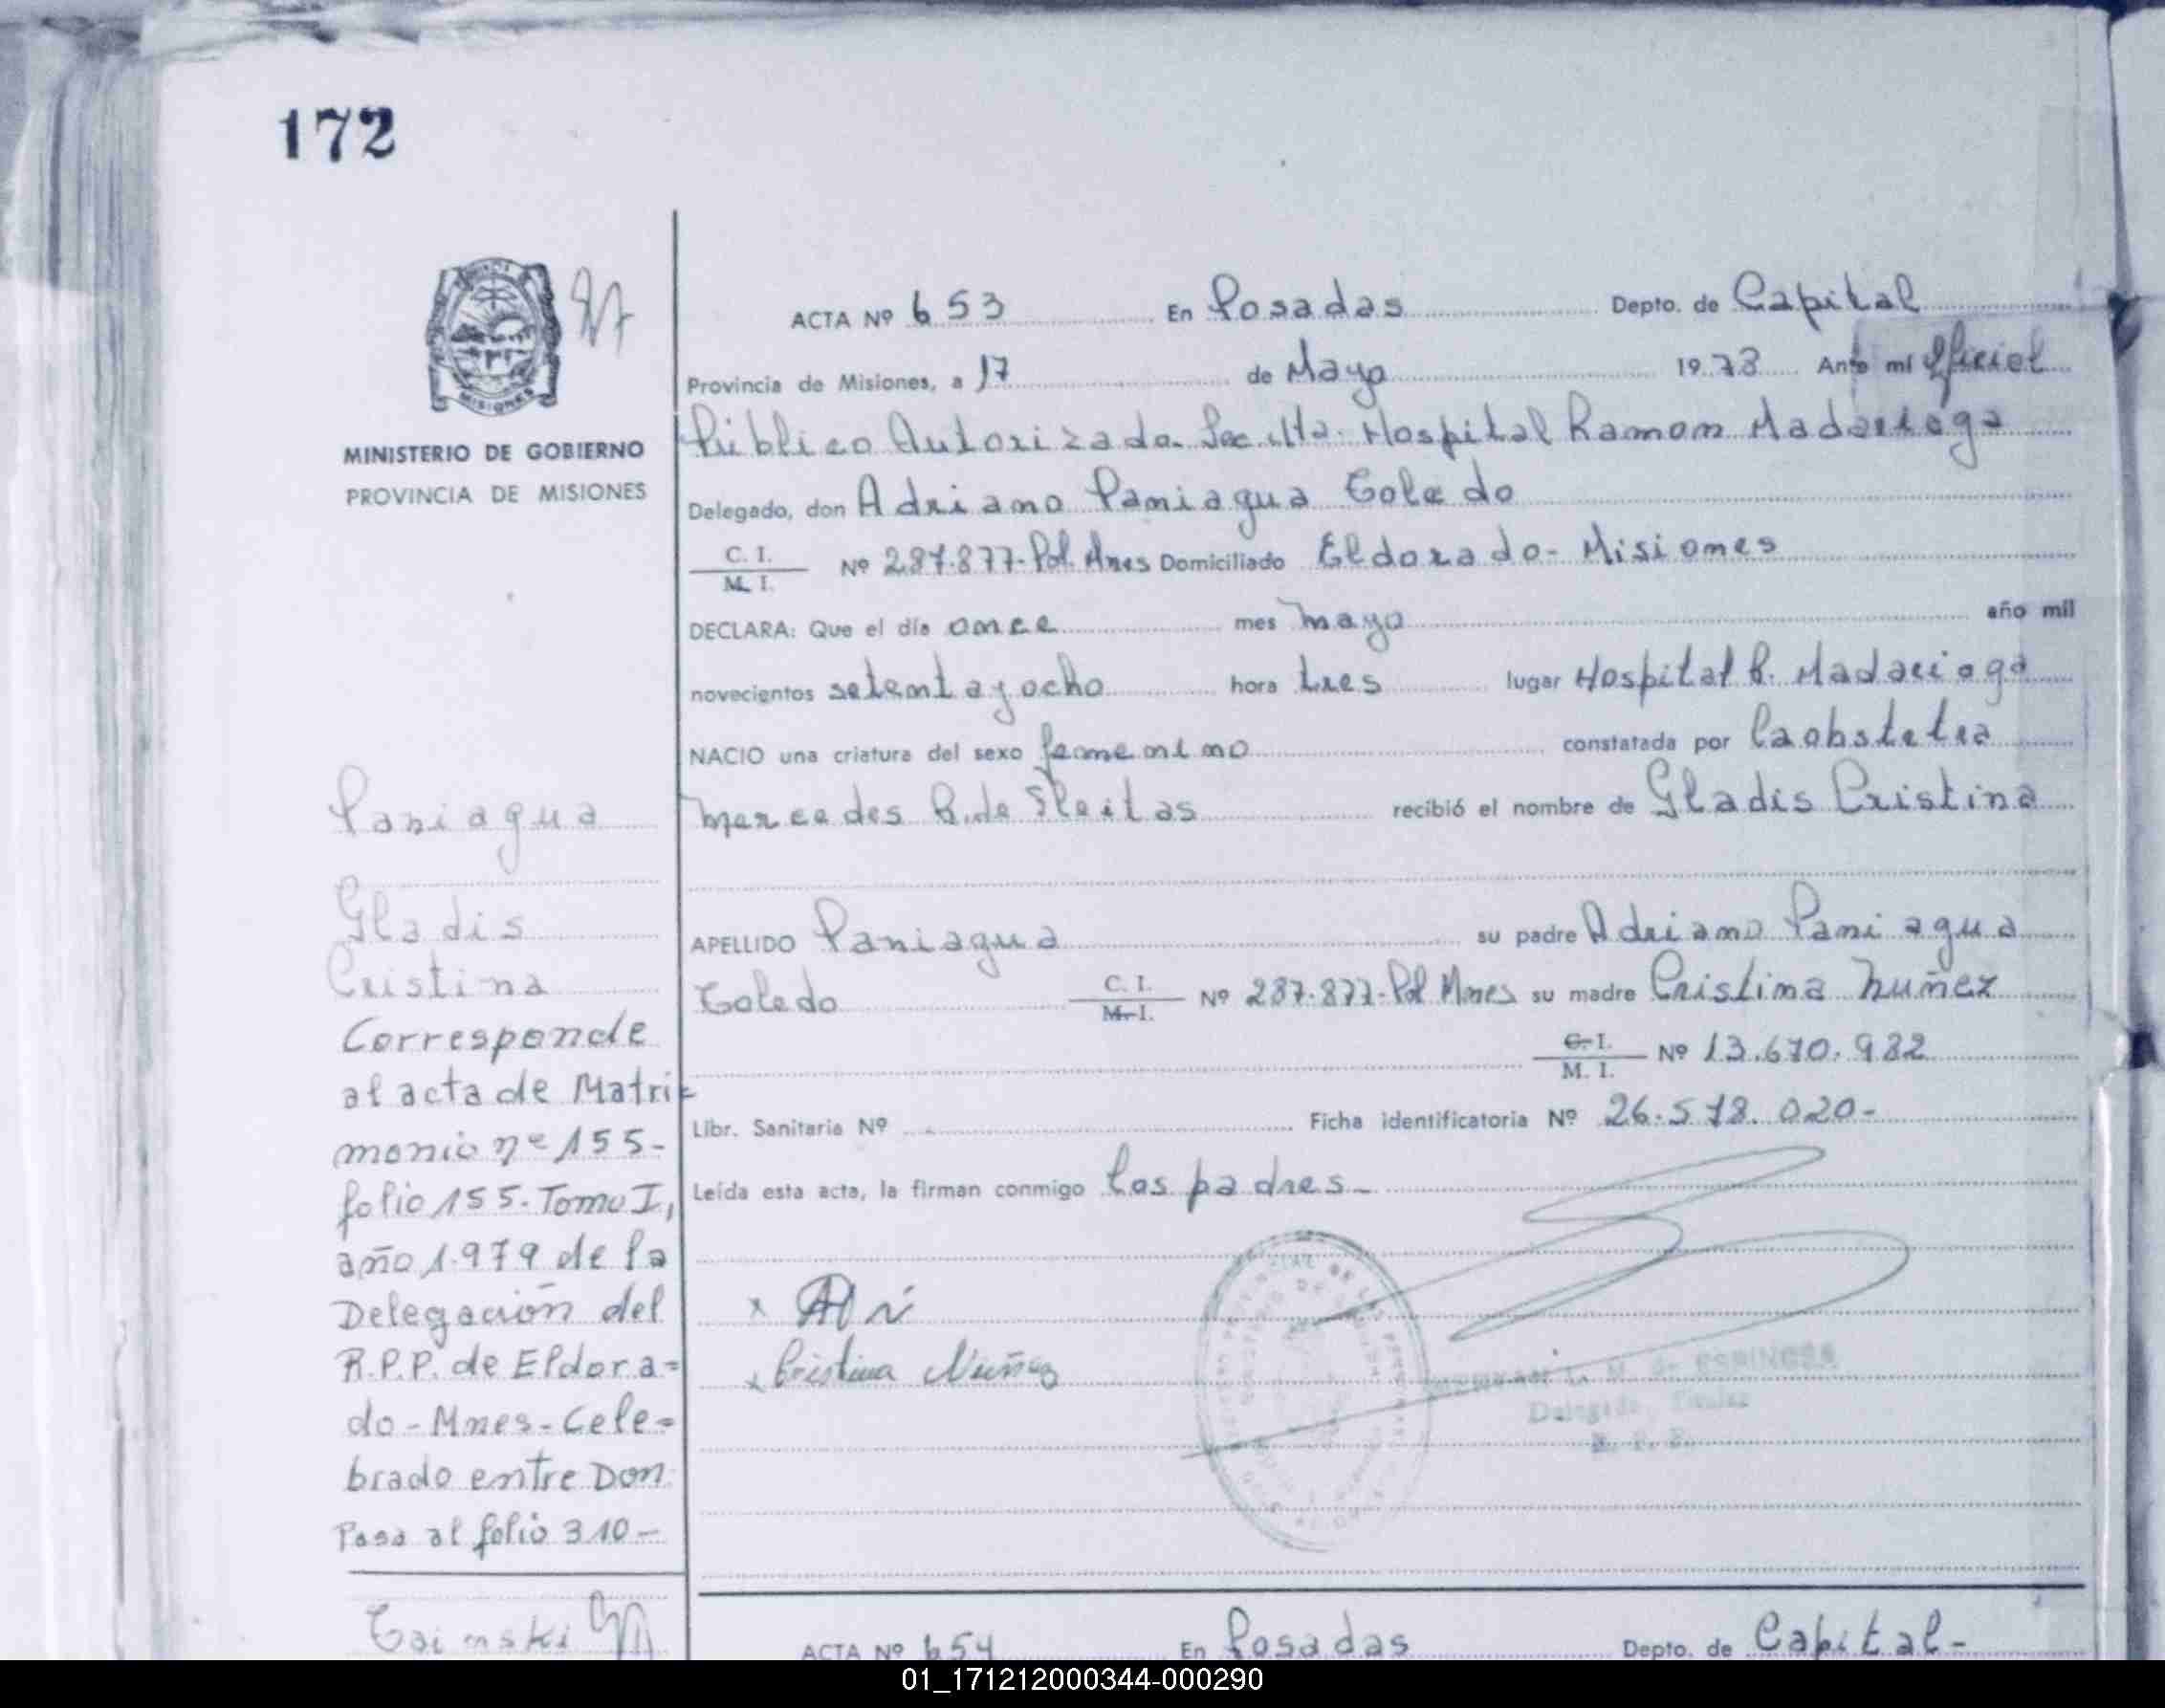 172
MINISTERIO DE GOBIERNO
PROVINCIA DE MISIONES
ACTA Nº 653 En Posadas Depto. de Capital
Provincia de Misiones, a 17 de Mayo 1978 Ante mí Oficial
Público Autorizada Hospital Ramon Madariaga
Delegado, don Adriano Paniagua Toledo
C. I. / M. I. Nº 287.877-Pol. Mnes Domiciliado Eldorado-Misiones
DECLARA: Que el día once mes mayo año mil
novecientos setenta y ocho hora tres lugar Hospital R. Madariaga
NACIO una criatura del sexo femenino constatada por la obstetra
Mercedes B. de Fleitas recibió el nombre de Gladis Cristina
APELLIDO Paniagua su padre Adriano Paniagua
Toledo C. I. / M. I. Nº 287.877-Pol Mnes su madre Cristina Nuñez
C. I. / M. I. Nº 13.670.982
Libr. Sanitaria Nº Ficha identificatoria Nº 26.578.020-
Leída esta acta, la firman conmigo los padres-
x
x Cristina Nuñez
de ESPINOSA
Delegada Titular
Paniagua
Gladis
Cristina
Corresponde
al acta de Matri=
monio nº 155-
folio 155-Tomo I,
año 1.979 de la
Delegación del
R.P.P. de Eldora=
do-Mnes-Cele=
brado entre Don
Pasa al folio 310-
ACTA Nº 654 En Posadas Depto. de Capital-
01_171212000344-000290